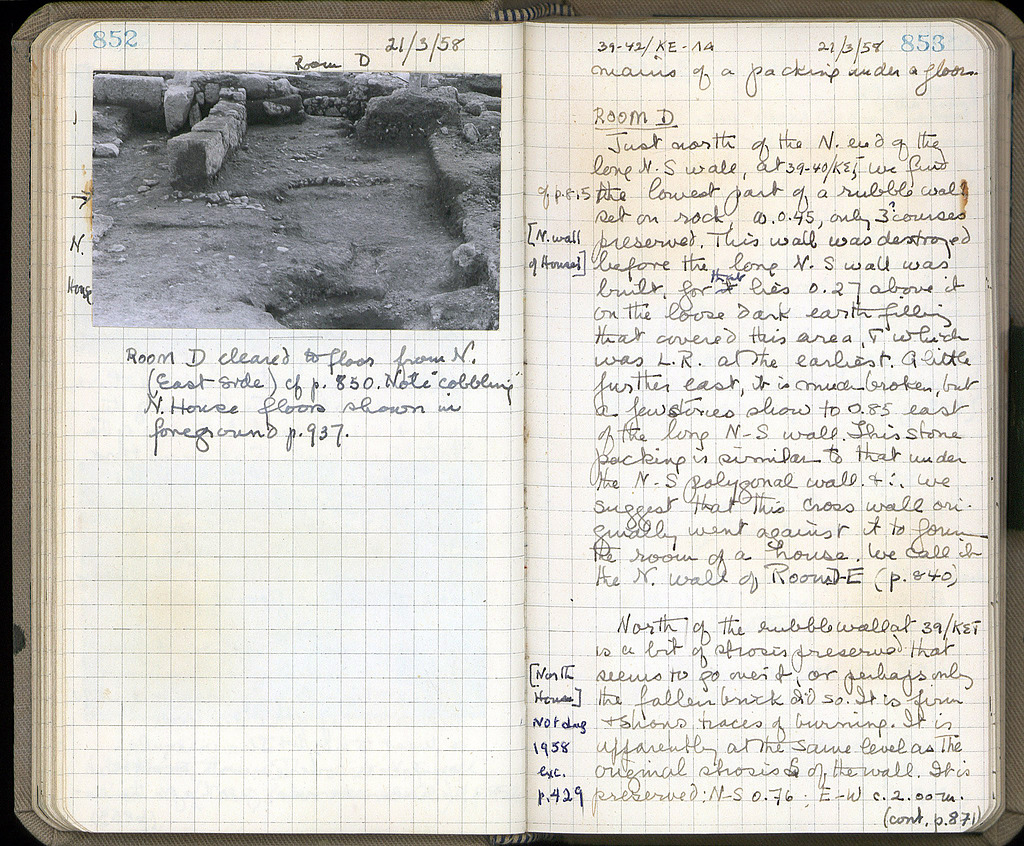 852
21/3/58
Room D
N.
House
ROOM D cleared to floor from N.
(East side) cf p. 850. Note "cobbling"
N. House floors shown in
foreground p. 937.
39-42/KE-ΛΔ 21/3/58 853
mains of a packing under a floor.
ROOM D
Just north of the N. end of the
long N-S wall, at 39-40/ΚΕΤ we find
cf p. 815 the lowest part of a rubble wall
set on rock, w. 0.45, only 3 courses
[N. wall preserved. This wall was destroyed
of House] before the long N-S wall was
built, for that lies 0.27 above it
on the loose dark earth filling
that covered this area, which
was L.R. at the earliest. A little
further east, it is much broken, but
a few stones show to 0.85 east
of the long N-S wall. This stone
packing is similar to that under
the N-S polygonal wall & ∴ we
suggest that this cross wall ori-
ginally went against it to form
the room of a house. We call it
the N. wall of Room D-E (p. 840)
North of the rubble wall at 39/ΚΕΤ
is a bit of strosis preserved that
[North seems to go over it, or perhaps only
House] the fallen brick did so. It is firm
Not dug & shows traces of burning. It is
1958 apparently at the same level as the
exc. original strosis of the wall. It is
p. 429 preserved: N-S 0.76; E-W c. 2.00 m.
(cont. p. 871)